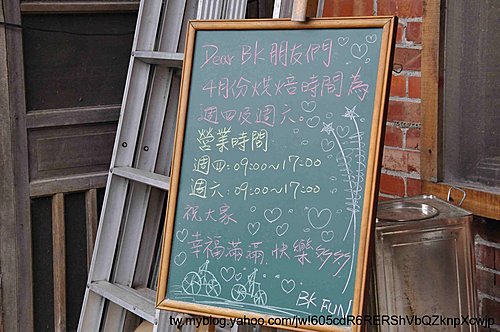 Dear BK 朋友們
4月份烘焙時間為
週四及週六。
營業時間
週四:09:00~17:00
週六:09:00~17:00
祝大家
幸福滿滿,快樂多多多多
BK FUN
tw.myblog.yahoo.com/jwl605cdR6RERShVbQZknpXcwjp